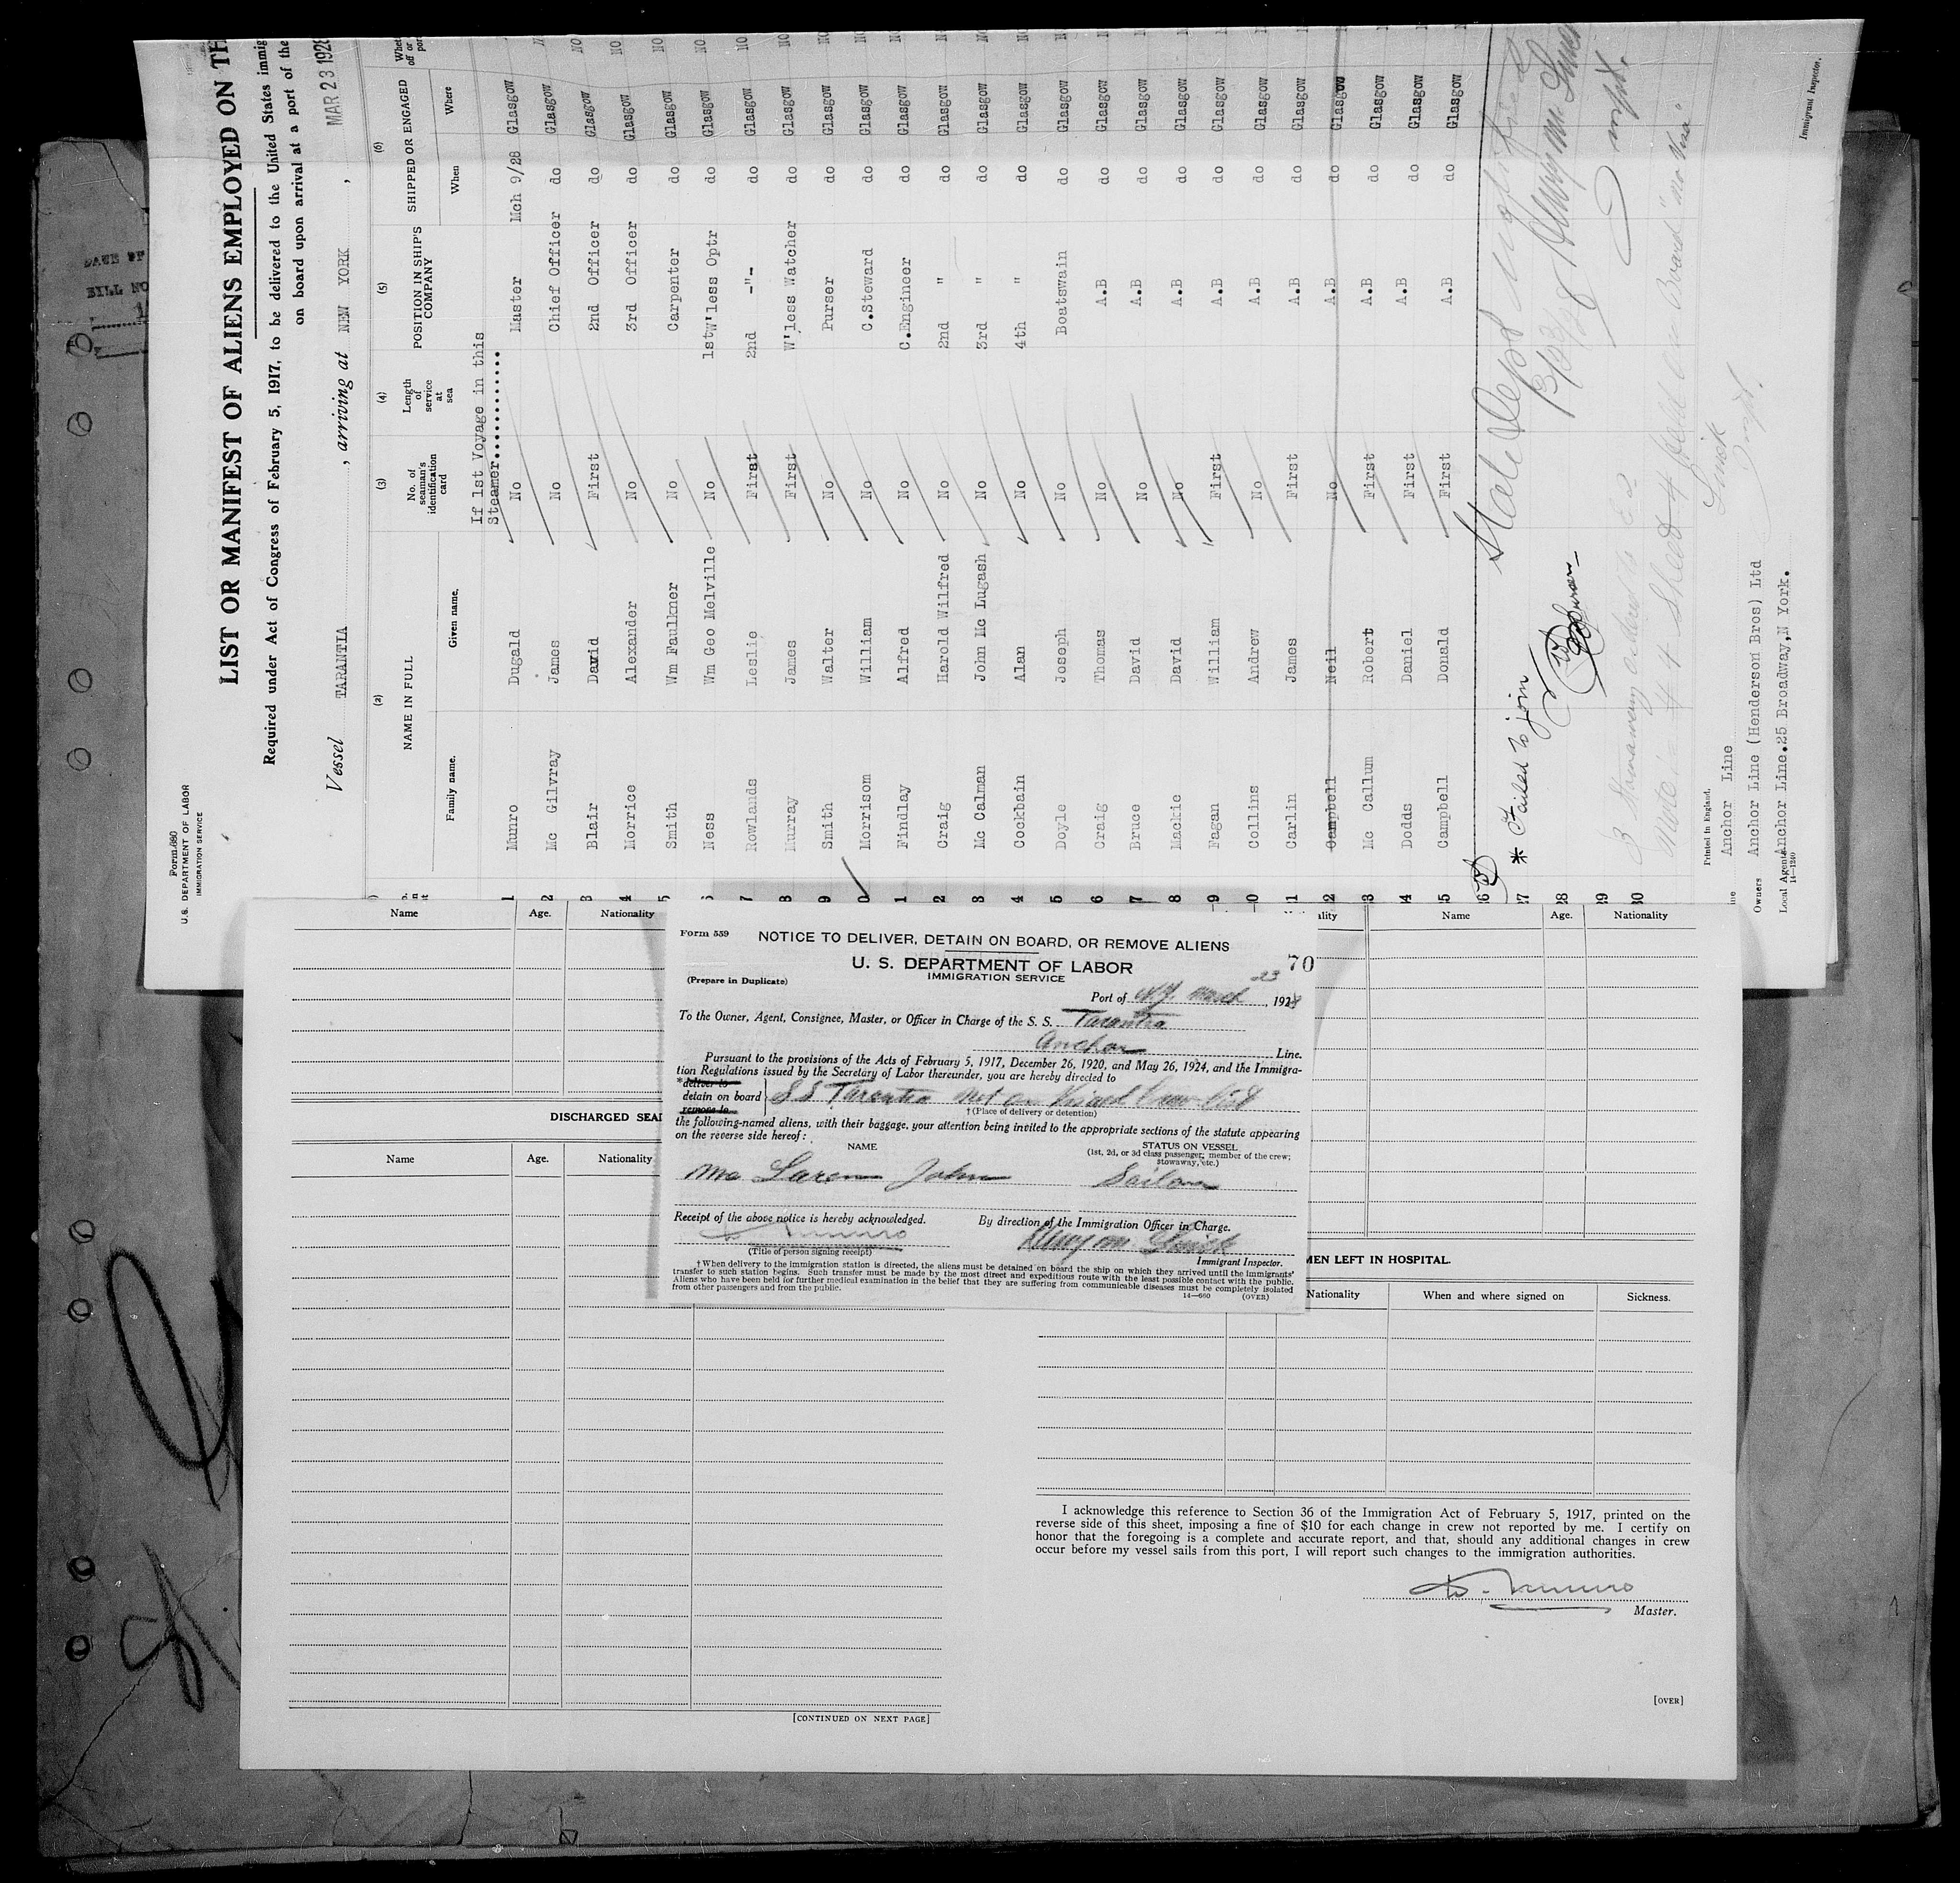 Form 680
U.S. DEPARTMENT OF LABOR
IMMIGRATION SERVICE
LIST OR MANIFEST OF ALIENS EMPLOYED ON TH
Required under Act of Congress of February 5, 1917, to be delivered to the United States immig
on board upon arrival at a port of the
Vessel TARANTIA, arriving at NEW YORK, MAR 23 1928
(2) (3) (4) (5) (6)
NAME IN FULL No. of seaman's identification card Length of service at sea POSITION IN SHIP'S COMPANY SHIPPED OR ENGAGED
Family name. Given name. When Where
If 1st Voyage in this
Steamer
1 Munro Dugald No Master Mch 9/28 Glasgow NO
2 Mc Gilvray James No Chief Officer do Glasgow
3 Blair David First 2nd Officer do Glasgow NO
4 Morrice Alexander No 3rd Officer do Glasgow NO
5 Smith Wm Faulkner No Carpenter do Glasgow NO
6 Ness Wm Geo Melville No 1stW'less Optr do Glasgow NO
7 Rowlands Leslie First 2nd -"- do Glasgow NO
8 Murray James First W'less Watcher do Glasgow NO
9 Smith Walter No Purser do Glasgow NO
0 Morrison William No C.Steward do Glasgow NO
1 Findlay Alfred No C.Engineer do Glasgow
2 Craig Harold Wilfred No 2nd " do Glasgow
3 Mc Calman John Mc Lugash No 3rd " do Glasgow
4 Cockbain Alan No 4th " do Glasgow
5 Doyle Joseph No Boatswain do Glasgow
6 Craig Thomas No A.B do Glasgow
7 Bruce David No A.B do Glasgow
8 Mackie David No A.B do Glasgow
9 Fagan William First A.B do Glasgow
0 Collins Andrew No A.B do Glasgow
1 Carlin James First A.B do Glasgow
2 Campbell Neil No A.B do Glasgow
3 Mc Callum Robert First A.B do Glasgow
4 Dodds Daniel First A.B do Glasgow
5 Campbell Donald First A.B do Glasgow
26
27 * Failed to join
28
29
30
State Dept Notified
3/23/28
"No Visa"
Printed in England.
Anchor Line
Owners Anchor Line (Henderson Bros) Ltd
Local Agents Anchor Line.25 Broadway,N York.
14—1240
Immigrant Inspector.
Name Age. Nationality
Name Age. Nationality
DISCHARGED SEA
Name Age. Nationality
[CONTINUED ON NEXT PAGE]
Form 539
NOTICE TO DELIVER, DETAIN ON BOARD, OR REMOVE ALIENS
U. S. DEPARTMENT OF LABOR
IMMIGRATION SERVICE
70
(Prepare in Duplicate)
Port of N.Y. March 23, 1928
To the Owner, Agent, Consignee, Master, or Officer in Charge of the S. S. Tarantia
Anchor Line.
Pursuant to the provisions of the Acts of February 5, 1917, December 26, 1920, and May 26, 1924, and the Immigra-
tion Regulations issued by the Secretary of Labor thereunder, you are hereby directed to
*deliver to
detain on board
remove to
SS Tarantia not on Visaed Crew list
†(Place of delivery or detention)
the following-named aliens, with their baggage, your attention being invited to the appropriate sections of the statute appearing
on the reverse side hereof:
NAME STATUS ON VESSEL
(1st, 2d, or 3d class passenger; member of the crew;
stowaway, etc.)
Mc Laren John Sailor
Receipt of the above notice is hereby acknowledged. By direction of the Immigration Officer in Charge.
D. Munro
(Title of person signing receipt)
Immigrant Inspector.
†When delivery to the immigration station is directed, the aliens must be detained on board the ship on which they arrived until the immigrants'
transfer to such station begins. Such transfer must be made by the most direct and expeditious route with the least possible contact with the public.
Aliens who have been held for further medical examination in the belief that they are suffering from communicable diseases must be completely isolated
from other passengers and from the public.
14—660 (OVER)
MEN LEFT IN HOSPITAL.
Nationality When and where signed on Sickness.
I acknowledge this reference to Section 36 of the Immigration Act of February 5, 1917, printed on the
reverse side of this sheet, imposing a fine of $10 for each change in crew not reported by me. I certify on
honor that the foregoing is a complete and accurate report, and that, should any additional changes in crew
occur before my vessel sails from this port, I will report such changes to the immigration authorities.
D. Munro
Master.
[OVER]